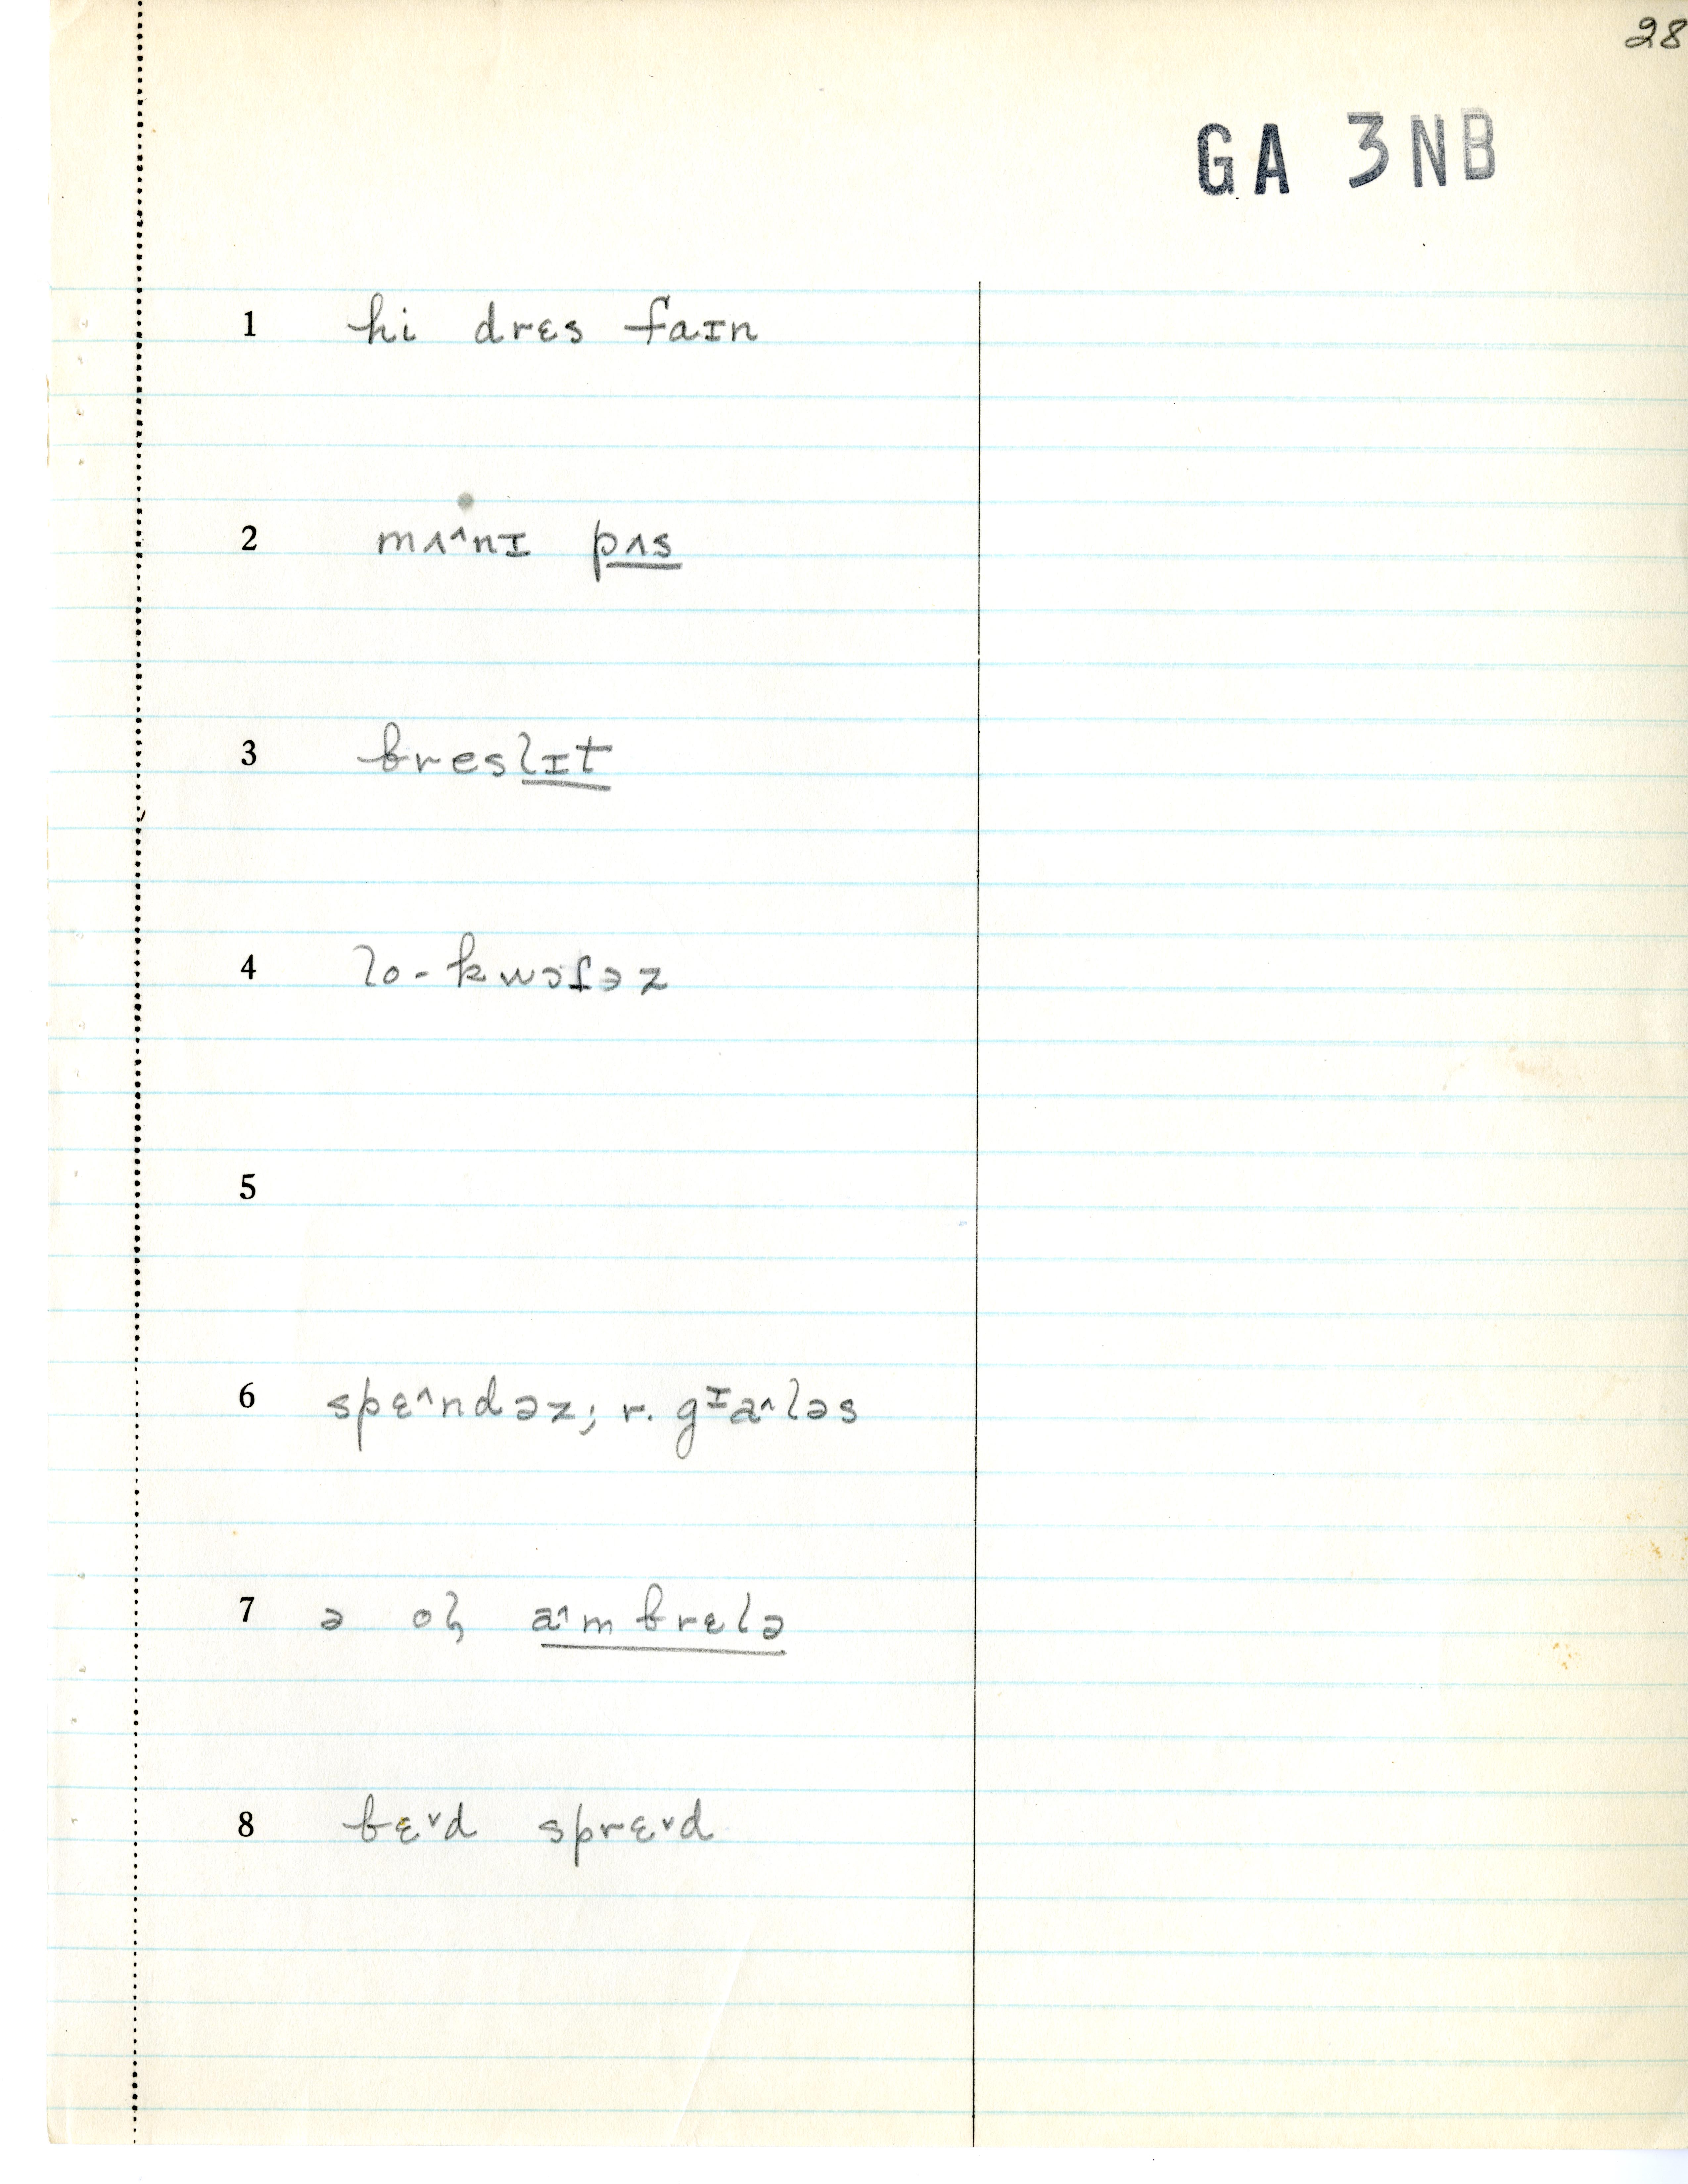 28
GA 3NB
1 hi drɛs faɪn
2 mʌ^nɪ pʌs
3 breslɪt
4 lo-kwɔʃəz
5
6 spɛ^ndəz; r. gᶦa^ləs
7 ə ol̥ a^mbrɛlə
8 bɛᵛd sprɛᵛd